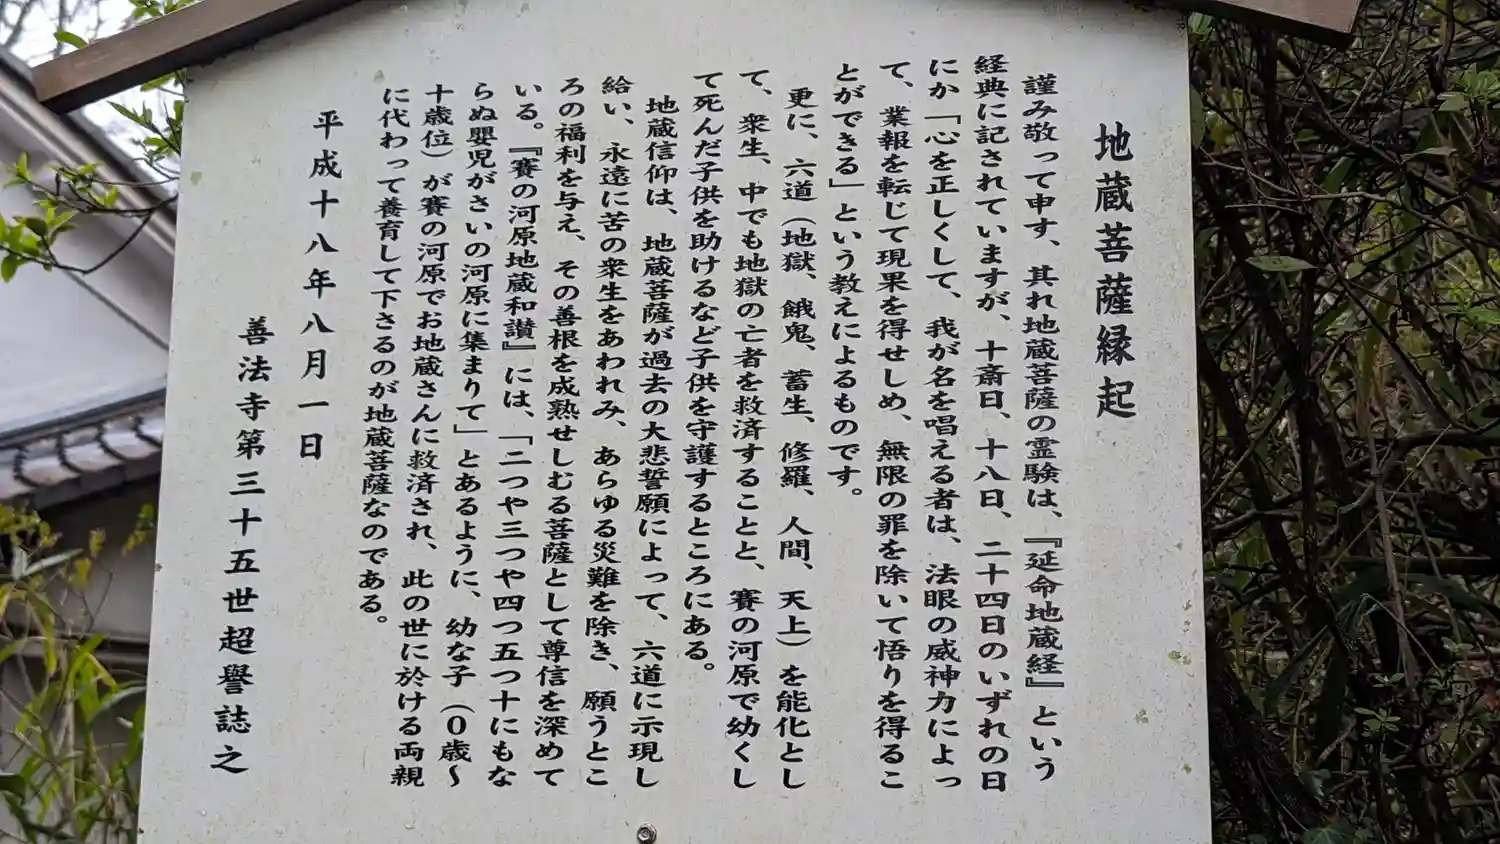 地蔵菩薩縁起
謹み敬って申す、其れ地蔵菩薩の霊験は、『延命地蔵経』という
経典に記されていますが、十斎日、十八日、二十四日のいずれの日
にか「心を正しくして、我が名を唱える者は、法眼の威神力によっ
て、業報を転じて現果を得せしめ、無限の罪を除いて悟りを得るこ
とができる」という教えによるものです。
更に、六道（地獄、餓鬼、蓄生、修羅、人間、天上）を能化とし
て、衆生、中でも地獄の亡者を救済することと、賽の河原で幼くし
て死んだ子供を助けるなど子供を守護するところにある。
地蔵信仰は、地蔵菩薩が過去の大悲誓願によって、六道に示現し
給い、永遠に苦の衆生をあわれみ、あらゆる災難を除き、願うとこ
ろの福利を与え、その善根を成熟せしむる菩薩として尊信を深めて
いる。『賽の河原地蔵和讃』には、「二つや三つや四つ五つ十にもな
らぬ嬰児がさいの河原に集まりて」とあるように、幼な子（０歳〜
十歳位）が賽の河原でお地蔵さんに救済され、此の世に於ける両親
に代わって養育して下さるのが地蔵菩薩なのである。
平成十八年八月一日
善法寺第三十五世超誉誌之